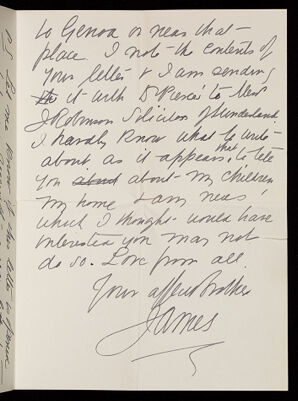 to Genoa or near that
place. I note the contents of
your letter & I am sending
it with D Pierce to Messrs
J Robinson Solicitors Sunderland
I hardly know what to write
about as it appears that to tell
you about about my children
my home & any news
which I thought would have
interested you may not
do so. Love from all.
Your affect Brother
James
P.S. Let me know if the